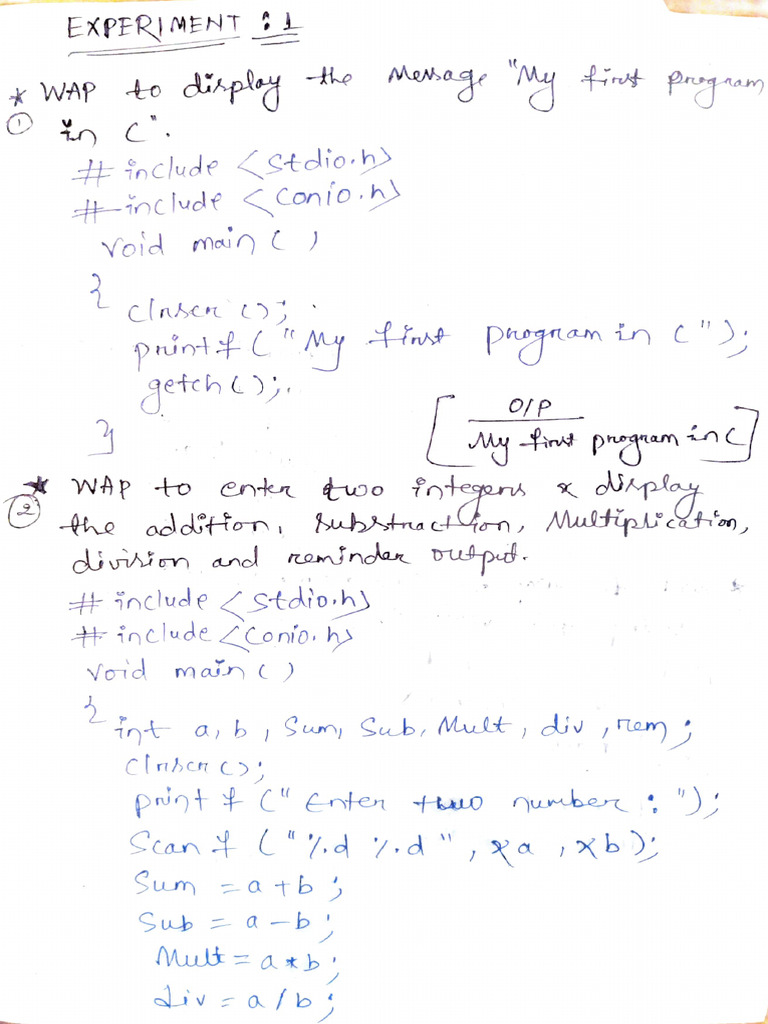 EXPERIMENT : 1
* WAP to display the Message "My first program
① in C".
# include <stdio.h>
# include <conio.h>
void main ( )
{
clrscr ();
printf ("My first program in C");
getch ();
}
[ O/P
My first program in C ]
* WAP to enter two integers & display
② the addition, Substraction, Multiplication,
division and reminder output.
# include <stdio.h>
# include <conio.h>
void main ( )
{
int a, b, Sum, Sub, Mult, div, rem;
clrscr ();
printf (" Enter two number : ");
Scanf ("%d %d", &a, &b);
Sum = a + b;
Sub = a - b;
Mult = a * b;
div = a / b;